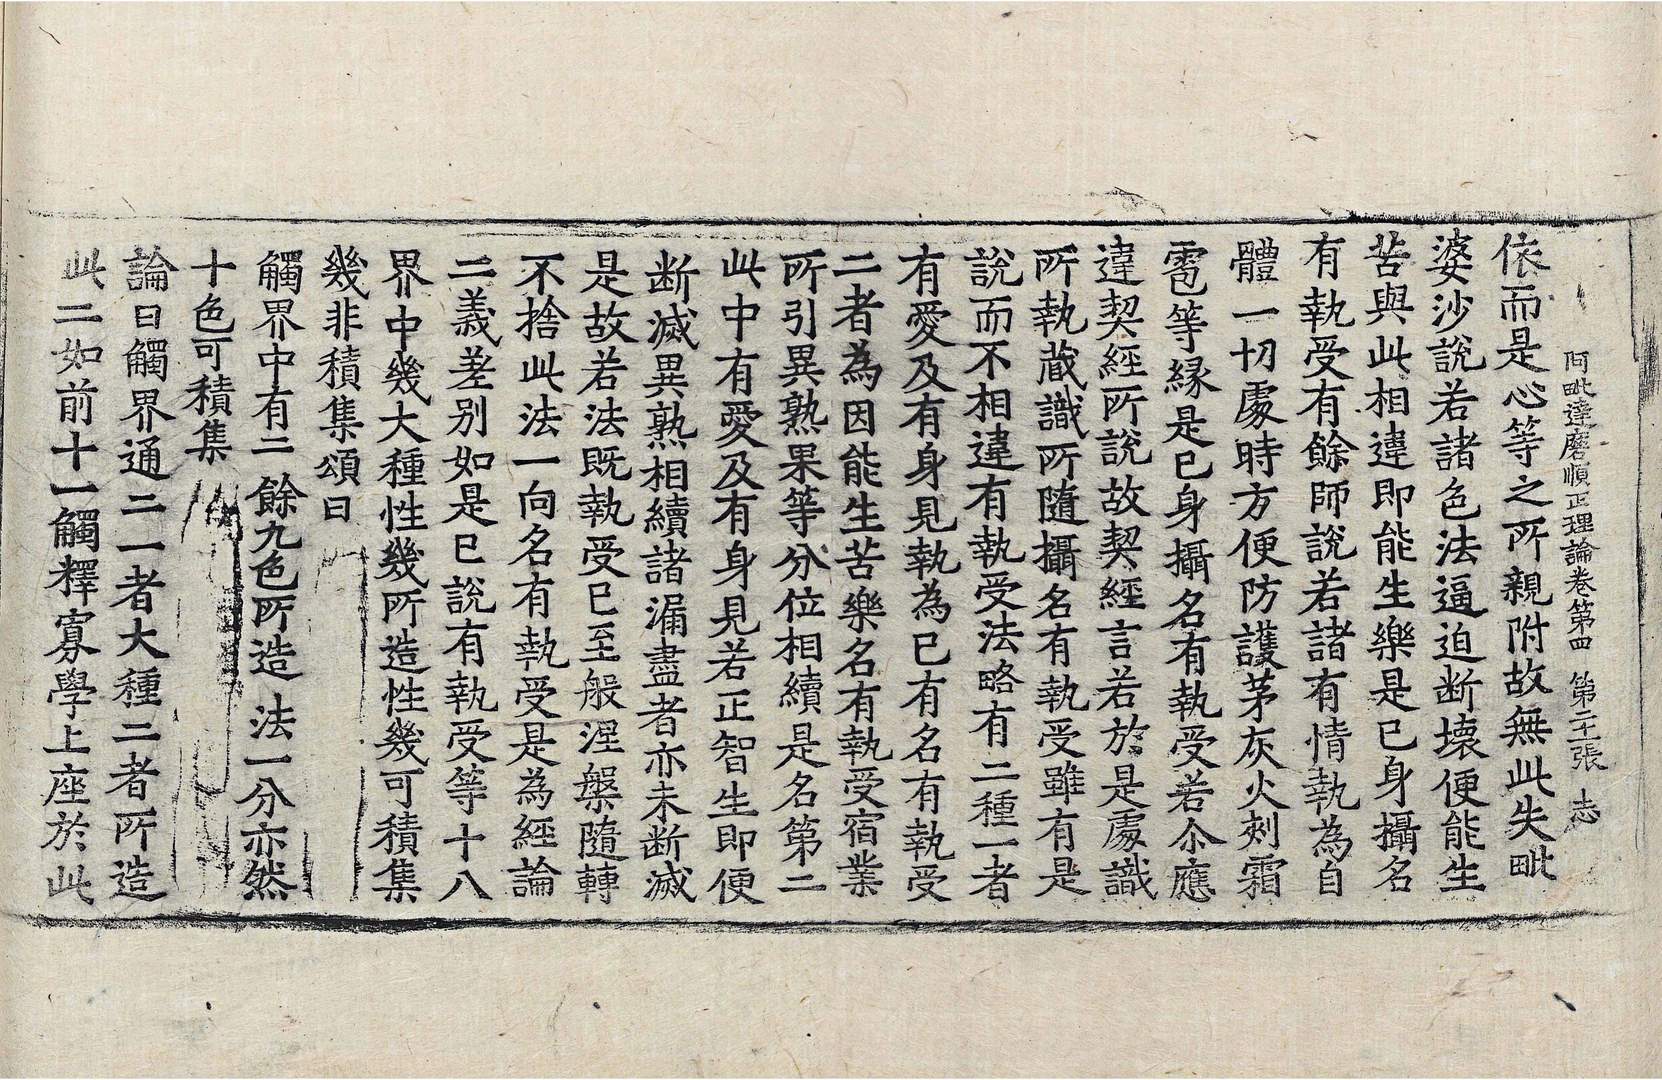 阿毗達磨順正理論卷第四　第二十張　志
依而是心等之所親附故無此失毗
婆沙說若諸色法逼迫断壞便能生
苦與此相違即能生樂是已身攝名
有執受有餘師說若諸有情執為自
體一切處時方便防護茅灰火刺霜
雹等緣是已身攝名有執受若尒應
違契經所說故契經言若於是處識
所執蔵識所隨攝名有執受雖有是
說而不相違有執受法略有二種一者
有愛及有身見執為已有名有執受
二者為因能生苦樂名有執受宿業
所引異熟果等分位相續是名第二
此中有愛及有身見若正智生即便
断滅異熟相續諸漏盡者亦未断滅
是故若法既執受已至般涅槃隨轉
不捨此法一向名有執受是為經論
二義差別如是已說有執受等十八
界中幾大種性幾所造性幾可積集
幾非積集頌曰
觸界中有二　餘九色所造　法一分亦然
十色可積集
論曰觸界通二一者大種二者所造
此二如前十一觸釋寡學上座於此